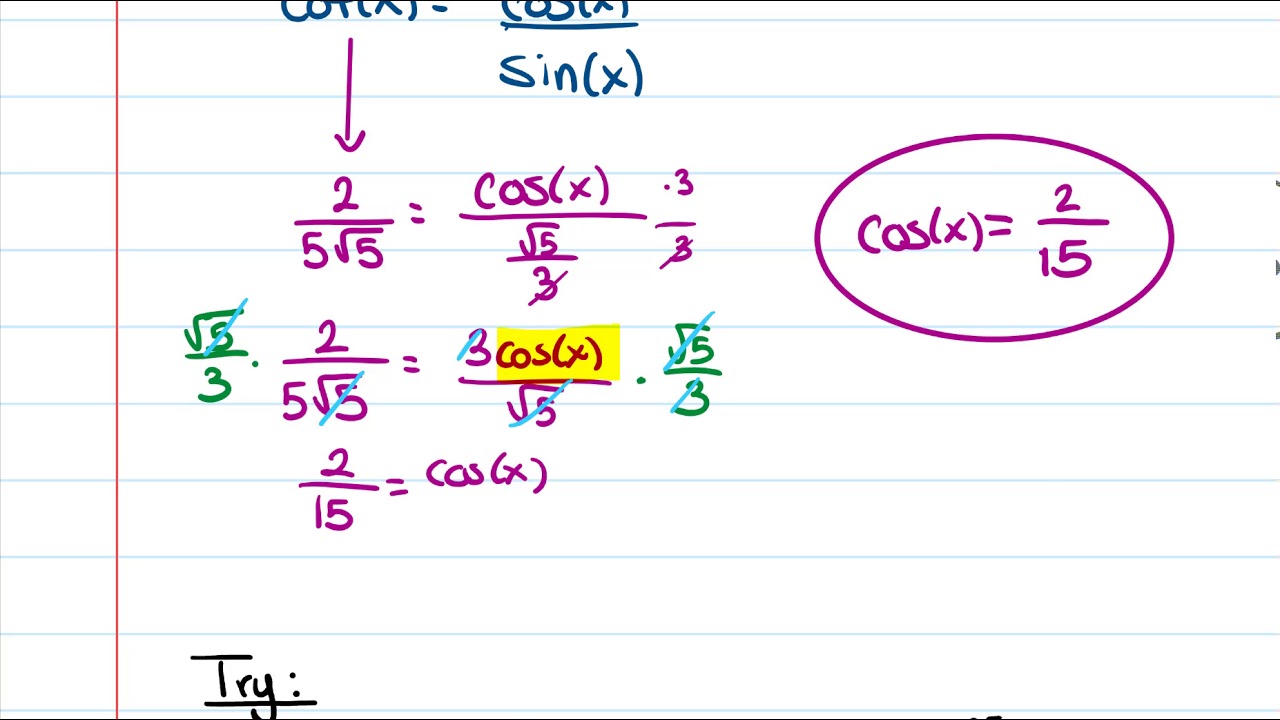 cot(x) = cos(x)/sin(x)
2/5√5 = cos(x)/(√5/3) · 3/3
cos(x) = 2/15
√5/3 · 2/5√5 = 3cos(x)/√5 · √5/3
2/15 = cos(x)
Try: